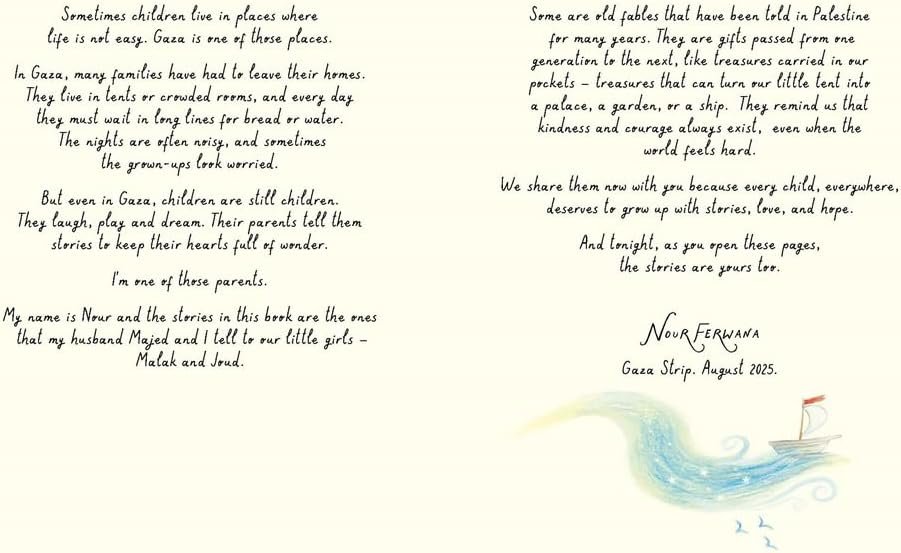 Sometimes children live in places where
life is not easy. Gaza is one of those places.
In Gaza, many families have had to leave their homes.
They live in tents or crowded rooms, and every day
they must wait in long lines for bread or water.
The nights are often noisy, and sometimes
the grown-ups look worried.
But even in Gaza, children are still children.
They laugh, play and dream. Their parents tell them
stories to keep their hearts full of wonder.
I'm one of those parents.
My name is Nour and the stories in this book are the ones
that my husband Majed and I tell to our little girls –
Malak and Joud.
Some are old fables that have been told in Palestine
for many years. They are gifts passed from one
generation to the next, like treasures carried in our
pockets – treasures that can turn our little tent into
a palace, a garden, or a ship. They remind us that
kindness and courage always exist, even when the
world feels hard.
We share them now with you because every child, everywhere,
deserves to grow up with stories, love, and hope.
And tonight, as you open these pages,
the stories are yours too.
NOUR FERWANA
Gaza Strip. August 2025.